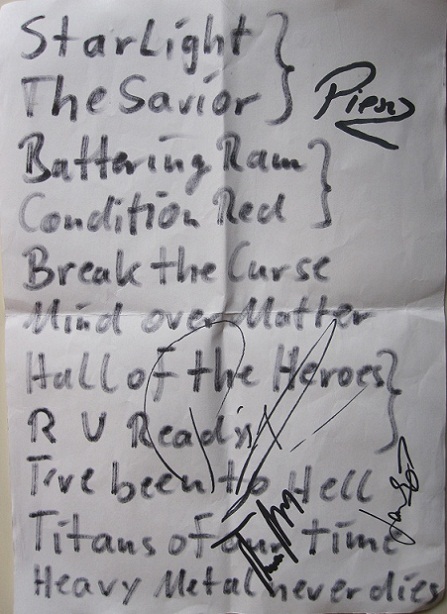 StarLight
The Savior
Battering Ram
Condition Red
Break the Curse
Mind over Matter
Hall of the Heroes
R U Ready
I've been to Hell
Titans of our time
Heavy Metal never dies